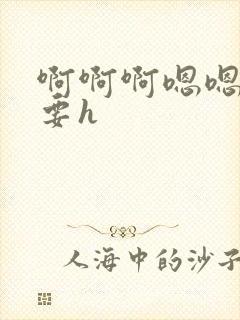 啊啊啊嗯嗯
要h
人海中的沙子